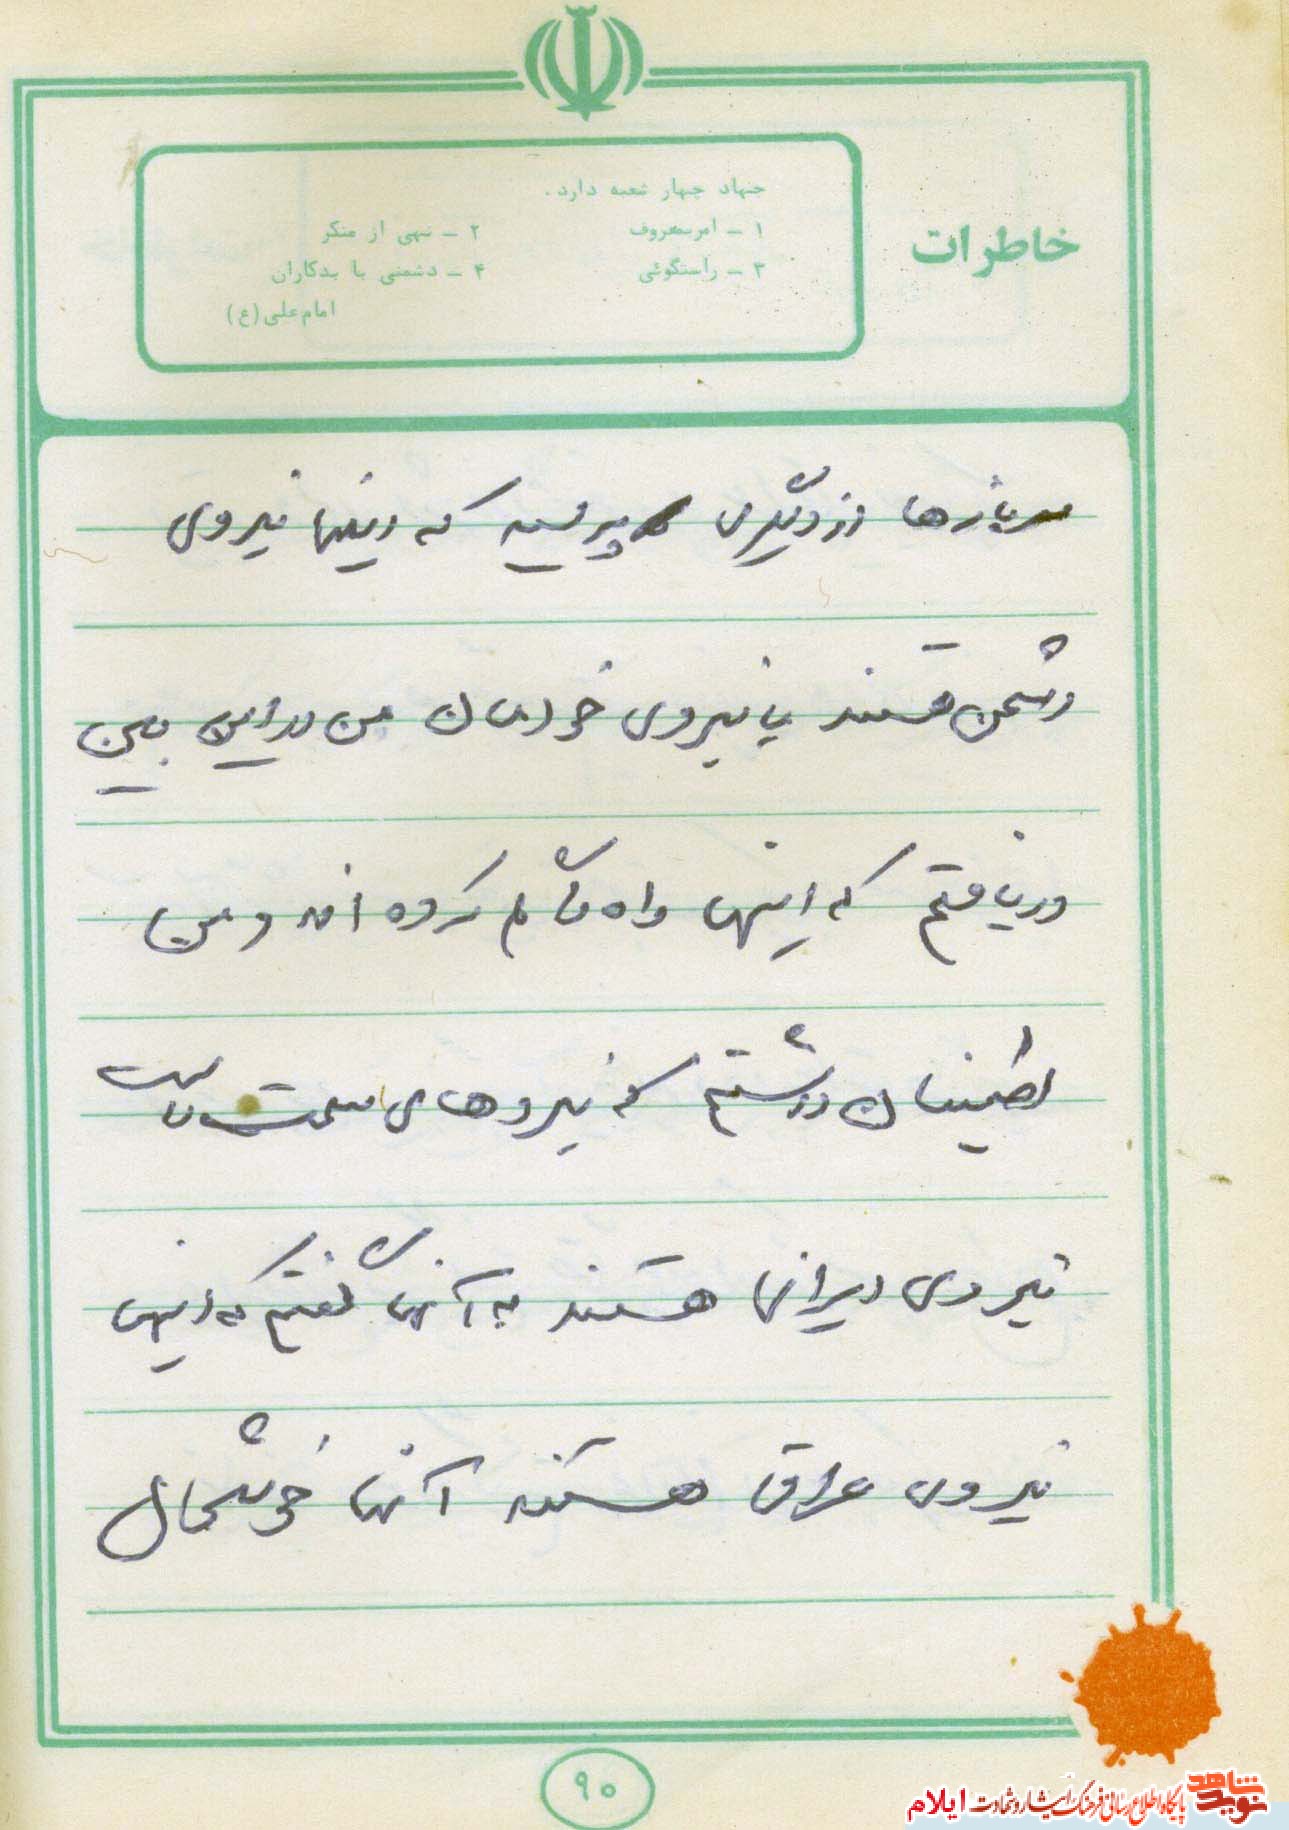 خاطرات
جهاد چهار شعبه دارد .
۱ – امربمعروف ۲ – نهی از منکر
۳ – راستگوئی ۴ – دشمنی با بدکاران
امام علی (ع)
سربازها از دیگری پرسید که اینها نیروی
دشمن هستند یا نیروی خودمان من در این بین
دریافتم که اینها راه را گم کرده اند و من
اطمینان داشتم که نیروهای سمت راست
نیروی ایرانی هستند به آنها گفتم که اینها
نیروی عراق هستند آنها خوشحال
۹۰
نوید شاهد
پایگاه اطلاع رسانی فرهنگ ایثار و شهادت ایلام